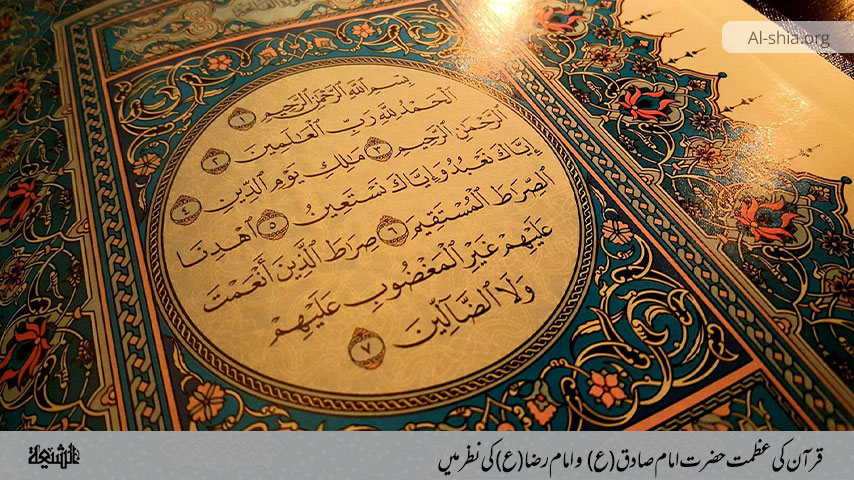 Al-shia.org
بِسْمِ ٱللَّهِ ٱلرَّحْمَٰنِ ٱلرَّحِيمِ ١
ٱلْحَمْدُ لِلَّهِ رَبِّ ٱلْعَٰلَمِينَ ٢
ٱلرَّحْمَٰنِ ٱلرَّحِيمِ ٣ مَٰلِكِ يَوْمِ ٱلدِّينِ ٤
إِيَّاكَ نَعْبُدُ وَإِيَّاكَ نَسْتَعِينُ ٥ ٱهْدِنَا
ٱلصِّرَٰطَ ٱلْمُسْتَقِيمَ ٦ صِرَٰطَ ٱلَّذِينَ أَنْعَمْتَ
عَلَيْهِمْ غَيْرِ ٱلْمَغْضُوبِ عَلَيْهِمْ
وَلَا ٱلضَّآلِّينَ ٧
قرآن کی عظمت حضرت امام صادق (ع) و امام رضا (ع) کی نظر میں
الشیعة